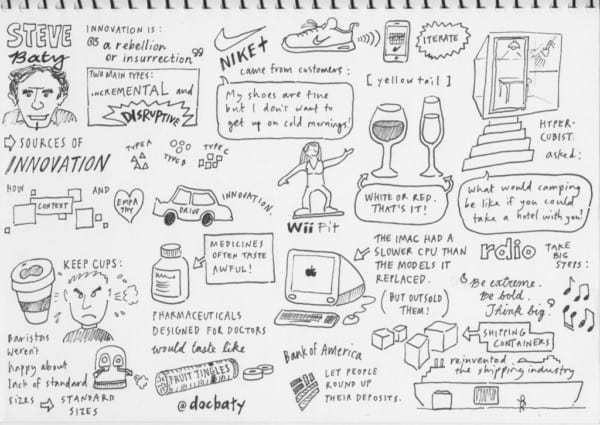 STEVE
Baty
INNOVATION IS:
"a rebellion
or insurrection"
TWO MAIN TYPES:
INCREMENTAL and
DISRUPTIVE
NIKE+
came from customers:
My shoes are fine
but I don't want to
get up on cold mornings!
ITERATE
[yellow tail]
WHITE OR RED.
THAT'S IT!
HYPER-
CUBIST
asked:
What would camping
be like if you could
take a hotel with you!
SOURCES OF
INNOVATION
TYPE A
TYPE B
TYPE C
HOW
CONTEXT
AND
EMPA
THY
DRIVE
INNOVATION.
Wii Fit
KEEP CUPS:
Baristas
weren't
happy about
lack of standard
sizes
STANDARD
SIZES
MEDICINES
OFTEN TASTE
AWFUL!
PHARMACEUTICALS
DESIGNED FOR DOCTORS
would taste like
FRUIT TINGLES
@docbaty
THE IMAC HAD A
SLOWER CPU THAN
THE MODELS IT
REPLACED.
(BUT OUTSOLD
THEM!)
Bank of America
LET PEOPLE
ROUND UP
THEIR DEPOSITS.
rdio
TAKE
BIG
STEPS:
"Be extreme.
Be bold.
Think big."
SHIPPING
CONTAINERS
reinvented
the shipping industry